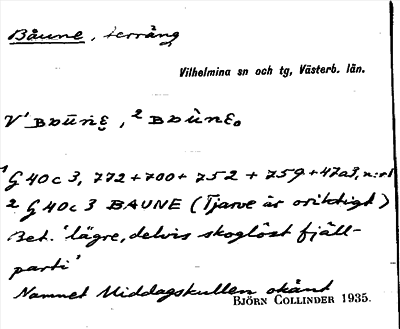 Båune, terräng
Vilhelmina sn och tg, Västerb. län.
G 40 c 3, 772+700+752+759+47a3, n:o1
2 G 40 c 3 BAUNE (Tjarve är oriktigt)
Bet. 'lägre, delvis skoglöst fjäll-
parti'
Namnet Middagskullen okänt
BJÖRN COLLINDER 1935.